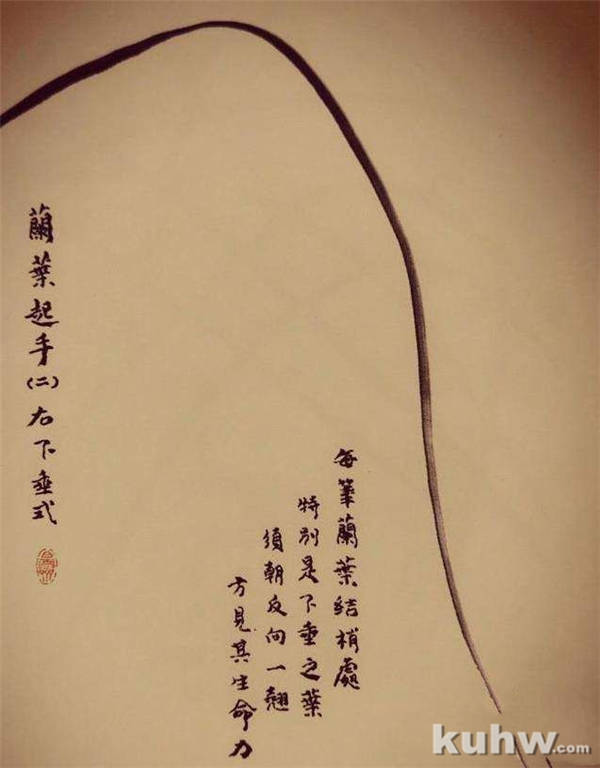 每筆蘭葉結梢處
特別是下垂之葉
須朝反向一翹
方見其生命力
蘭葉起手(二)右下垂式
kuhw.com